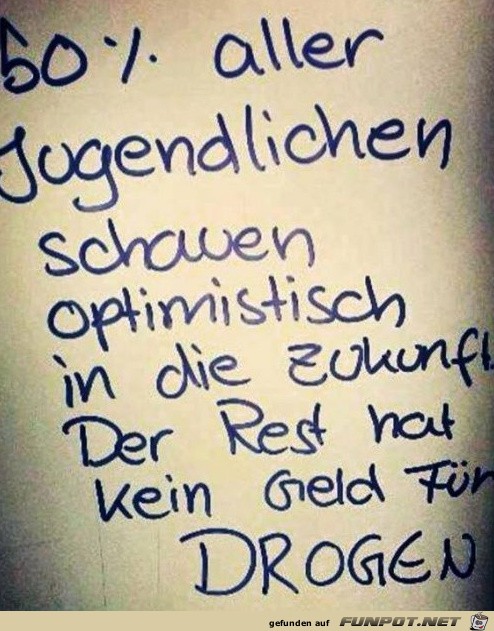 50% aller
Jugendlichen
schauen
optimistisch
in die Zukunft
Der Rest hat
kein Geld Für
DROGEN
gefunden auf FUNPOT.NET